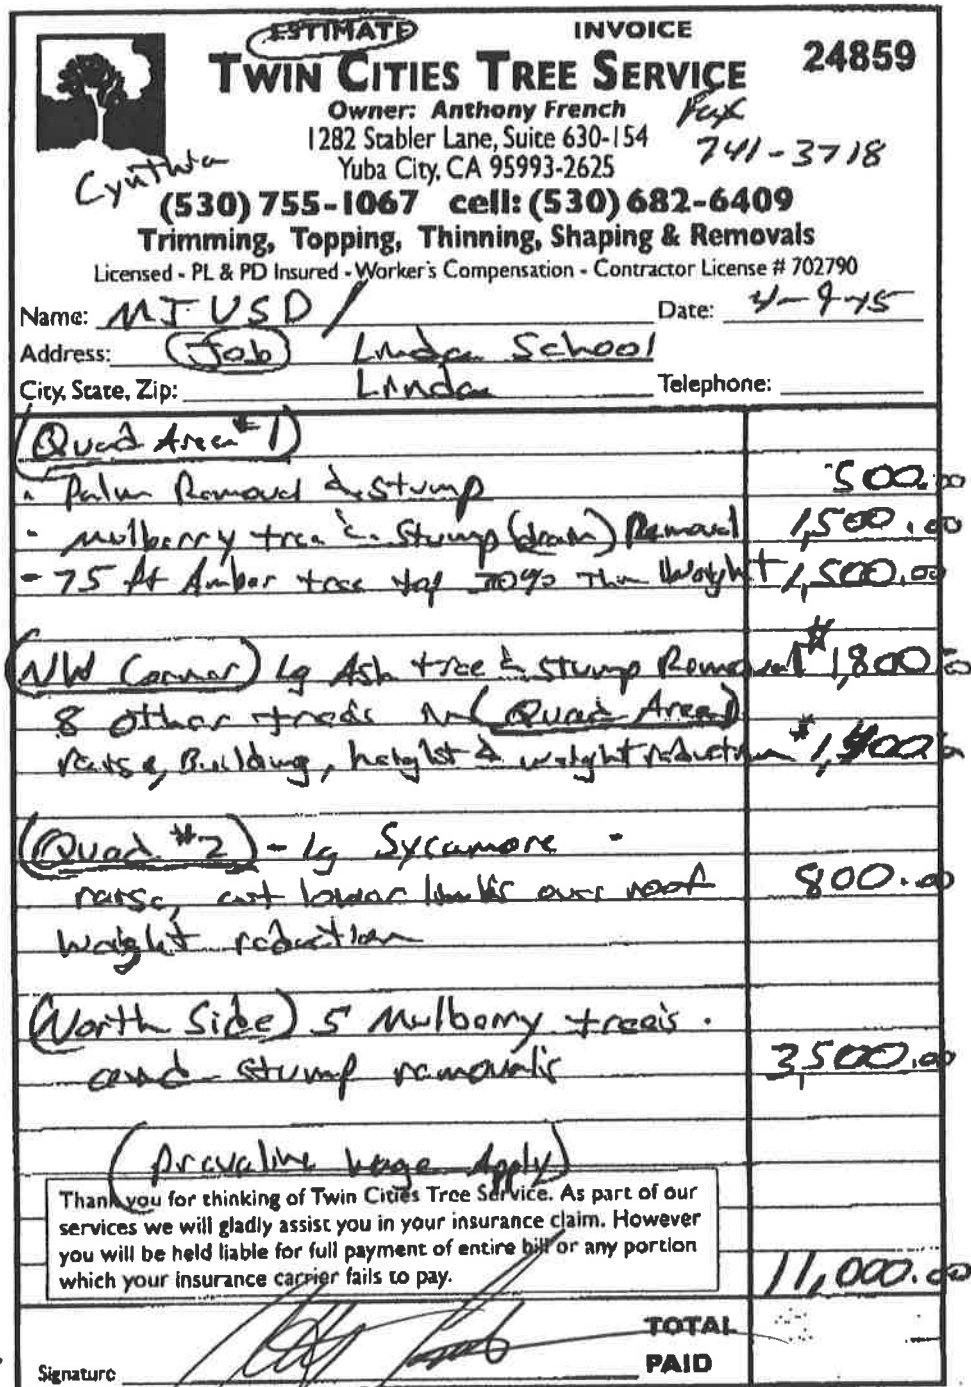 ESTIMATE INVOICE
TWIN CITIES TREE SERVICE 24859
Owner: Anthony French
Fax
1282 Stabler Lane, Suite 630-154
741-3718
Yuba City, CA 95993-2625
Cynthia
(530) 755-1067 cell: (530) 682-6409
Trimming, Topping, Thinning, Shaping & Removals
Licensed - PL & PD Insured - Worker's Compensation - Contractor License # 702790
Name: MJUSD / Date: 4-9-15
Address: Job Linda School
City, State, Zip: Linda Telephone:
Quad Area #1
- Palm Removal & Stump 500.00
- Mulberry tree & Stump (drain) Removal 1,500.00
- 75 ft Amber tree top 30% Thin Weight 1,500.00
(NW Corner) Lg Ash tree & stump Removal #1,800.00
8 other trees in (Quad Area)
raise, Building, height & weight reduction
(Quad #2) - lg Sycamore -
raise, cut lower limb's over roof 800.00
weight reduction
(North Side) 5 Mulberry tree's.
and stump removal's 3,500.00
(Wage Apply)
Thank you for thinking of Twin Cities Tree Service. As part of our
services we will gladly assist you in your insurance claim. However
you will be held liable for full payment of entire bill or any portion
which your insurance carrier fails to pay.
11,000.00
TOTAL
Signature PAID